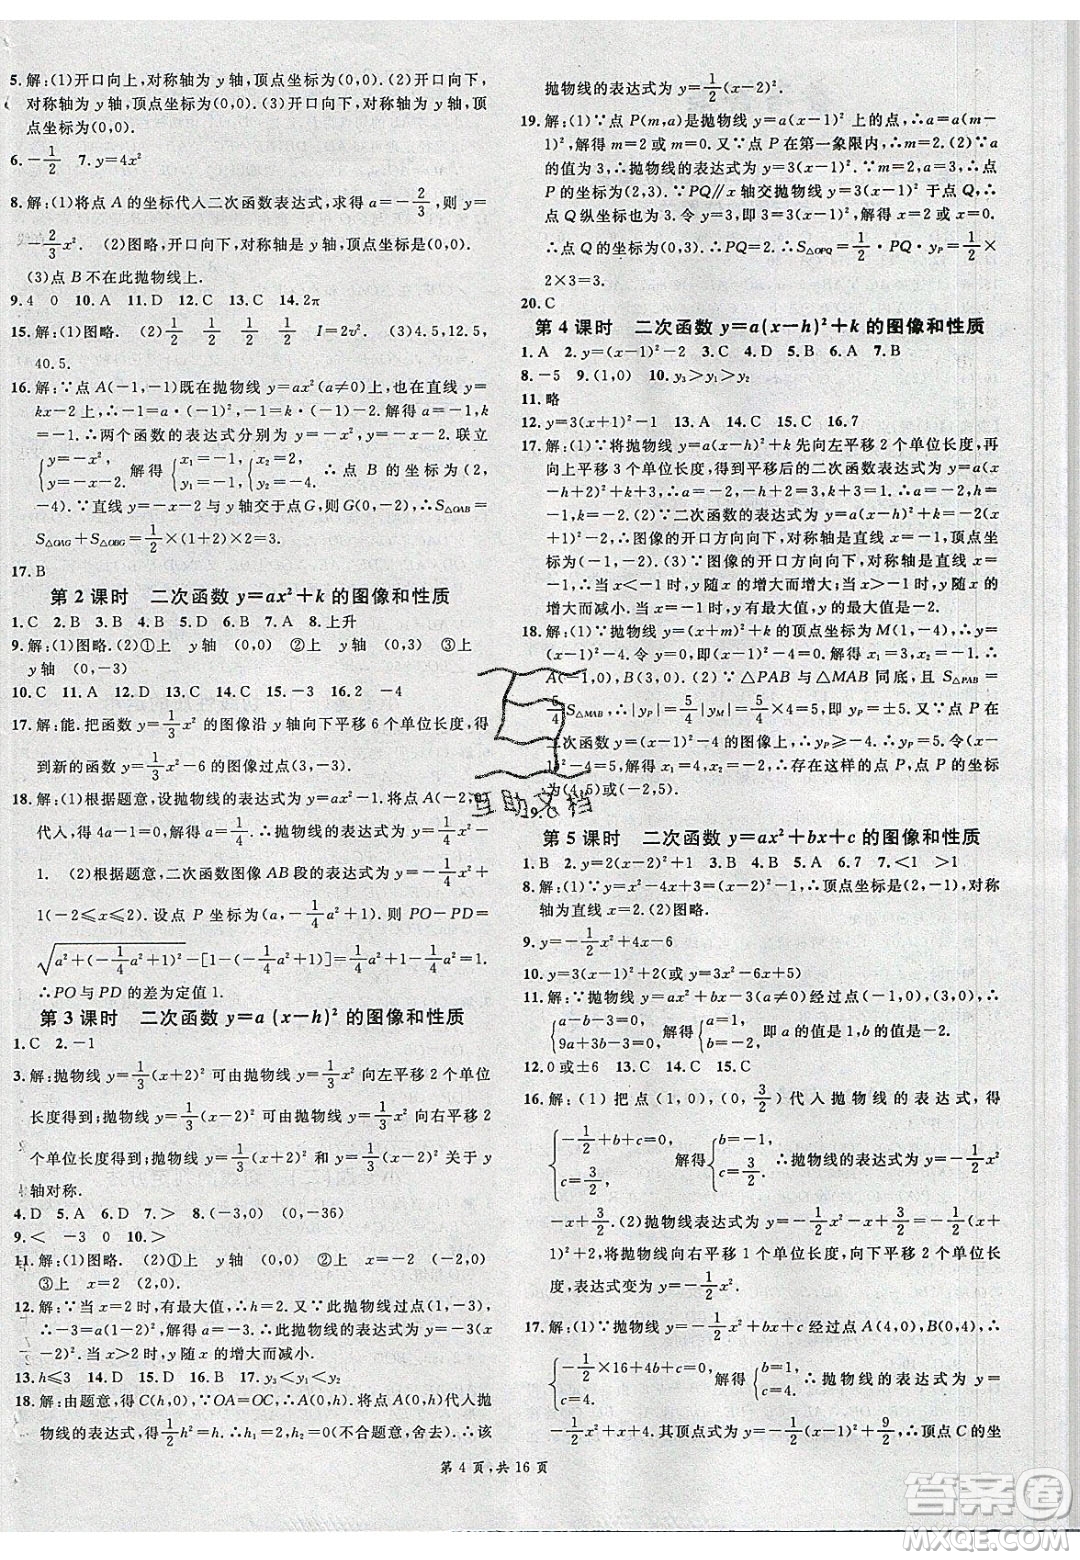 5.解:(1)开口向上,对称轴为 y 轴,顶点坐标为(0,0).(2)开口向下,
对称轴为 y 轴,顶点坐标为(0,0).(3)开口向下,对称轴为 y 轴,顶
点坐标为(0,0).
6.-1/2 7.y=4x²
8.解:(1)将点 A 的坐标代入二次函数表达式,求得 a=-2/3,则 y=
-2/3x². (2)图略,开口向下,对称轴是 y 轴,顶点坐标为(0,0).
(3)点 B 不在此抛物线上.
9.4 0 10.A 11.D 12.C 13.C 14.2π
15.解:(1)图略. (2)1/2 1/2 1/2 1/2 I=2v². (3)4.5,12.5,
40.5.
16.解:∵点 A(-1,-1)既在抛物线 y=ax²(a≠0)上,也在直线 y=
kx-2 上,∴-1=a·(-1)²,-1=k·(-1)-2.解得 a=-1,k=
-1.∴两个函数的表达式分别为 y=-x²,y=-x-2.联立
{y=-x², y=-x-2. 解得{x₁=-1, y₁=-1, {x₂=2, y₂=-4. ∴点 B 的坐标为(2,
-4).∵直线 y=-x-2 与 y 轴交于点 G,则 G(0,-2),∴S△OAB=
S△OAG+S△OBG=1/2×(1+2)×2=3.
17.B
第 2 课时 二次函数 y=ax²+k 的图像和性质
1.C 2.B 3.B 4.C 5.D 6.B 7.A 8.上升
9.解:(1)图略. (2)①上 y 轴 (0,0) ②上 y 轴 (0,3) ③上
y 轴 (0,-3)
10.C 11.A 12.D 13.D 14.C 15.-3 16.2 -4
17.解:能.把函数 y=1/3x² 的图像沿 y 轴向下平移 6 个单位长度,得
到新的函数 y=1/3x²-6 的图像过点(3,-3).
18.解:(1)根据题意,设抛物线的表达式为 y=ax²+1.将点 A(-2,0)
代入,得 4a-1=0.解得 
1. (2)根据题意,二次函数图像 AB 段的表达式为 y=-1/4x²+
1(-2≤x≤2).设点 P 坐标为(a,-1/4a²+1).则 PO-PD=
√(a²+(-1/4a²+1)²)-[1-(-1/4a²+1)]=1/4a²+1-1/4a²=1.
∴PO 与 PD 的差为定值 1.
第 3 课时 二次函数 y=a(x-h)² 的图像和性质
1.C 2.-1
3.解:抛物线 y=1/3(x+2)² 可由抛物线 y=1/3x² 向左平移 2 个单位
长度得到;抛物线 y=1/3(x-2)² 可由抛物线 y=1/3x² 向右平移 2
个单位长度得到;抛物线 y=1/3(x+2)² 和 y=1/3(x-2)² 关于 y
轴对称.
4.D 5.A 6.D 7.> 8.(-3,0) (0,-36)
9.< -3 0 10.>
11.解:(1)图略. (2)①上 y 轴 (0,0) ②上 x=-2 (-2,0)
③上 x=2 (2,0).
12.解:∵当 x=2 时,有最大值,∴h=2.又∵此抛物线过点(1,-3),
∴-3=a(1-2)²,解得 a=-3.∴此抛物线的表达式为 y=-3(x
-2)².当 x>2 时,y 随 x 的增大而减小.
13.h≤3 14.D 15.D 16.D 17.y₃<y₁<y₂
18.解:由题意,得 C(h,0),∵OA=OC,∴A(0,h).将点 A(0,h)代入抛
物线的表达式,得1/2h²=h.∴h₁=2,h₂=0(不符合题意,舍去).∴该
抛物线的表达式为 y=1/2(x-2)².
19.解:(1)∵点 P(m,a)是抛物线 y=a(x-1)² 上的点,∴a=a(m-
1)²,解得 m=2 或 m=0.∵点 P 在第一象限内,∴m=2.(2)∵a
的值为 3,∴抛物线的表达式为 y=3(x-1)².∵m=2,a=3,∴点
P 的坐标为(2,3).∵PQ∥x 轴交抛物线 y=a(x-1)² 于点 Q,∴
点 Q 纵坐标也为 3.令 y=3,即 3=3(x-1)²,解得 x=2 或 x=0.
∴点 Q 的坐标为(0,3).∴PQ=2.∴S△OPQ=1/2·PQ·yP=1/2×
2×3=3.
20.C
第 4 课时 二次函数 y=a(x-h)²+k 的图像和性质
1.A 2.y=(x-1)²-2 3.C 4.D 5.B 6.A 7.B
8.-5 9.(1,0) 10.y₃>y₁>y₂
11.略
12.y=3(x+1)²-1 13.A 14.C 15.C 16.7
17.解:(1)∵将抛物线 y=a(x-h)²+k 先向左平移 2 个单位长度,再
向上平移 3 个单位长度,得到平移后的二次函数表达式为 y=a(x
-h+2)²+k+3,
解得 
∵图像的开口方向向下,对称轴是直线 x=1,顶点坐标
为(1,-7).∵图像的开口方向向下,对称轴是直线 x=1,
∴当 x<1 时,y 随 x 的增大而增大;当 x>1 时,y 随 x 的增大而
增大而减小.当 x=1 时,y 有最大值-7.
18.解:(1)∵抛物线 y=(x+m)²+k 的顶点坐标为 M(1,-4),∴y=
(x-1)²-4.令(x-1)²-4=0.解得 x₁=3,x₂=-1.∴A(-1,
0),B(3,0).(2)存在.理由如下:∵△PAB 与△MAB 同底,且 S△PAB=
5/4S△MAB,∴|yP|=5/4|yM|=5/4×4=5,即 yP=±5.又∵点 P 在
二次函数 y=(x-1)²-4 的图像上,∴yP≥-4.∴yP=5.令(x
-1)²-4=5.解得 x₁=4,x₂=-2.∴存在这样的点 P,点 P 的坐标
为(4,5)或(-2,5).
19.C
第 5 课时 二次函数 y=ax²+bx+c 的图像和性质
1.B 2.y=2(x-2)²+1 3.C 4.A 5.A 6.7 7.<1 >1
8.解:(1)∵y=x²-4x+3=(x-2)²-1,∴顶点坐标为(2,-1),对称
轴为直线 x=2.(2)图略.
9.y=-1/2x²+4x-6
10.y=3(x-1)²+2(或 y=3x²-6x+5)
11.解:∵抛物线 y=ax²+bx-3(a≠0)经过点(-1,0),(3,0),∴
{a-b-3=0, 9a+3b-3=0, 解得{a=1, b=-2. 即 a 的值是 1,b 的值是-2.
12.0 或±6 13.C 14.C 15.C
16.解:(1)把点(1,0),(0,3/2)代入抛物线的表达式,得
{-1/2+b+c=0, c=3/2. 解得{b=-1, c=3/2. ∴抛物线的表达式为 y=-1/2x²
-x+3/2.(2)抛物线的表达式为 y=-1/2x²-x+3/2=-1/2(x+
1)²+2.将抛物线向右平移 1 个单位长度,向下平移 2 个单位长
度,表达式变为 y=-1/2x².
17.解:(1)∵抛物线 y=-1/2x²+bx+c 经过点 A(4,0),B(0,4),∴
{-1/2×16+4b+c=0, c=4. 解得{b=1, c=4. ∴抛物线的表达式为 y=
-1/2x²+x+4=-1/2(x-1)²+9/2.∴顶点 C 的坐
第 4 页,共 16 页
互助文档
答案圈
MXQE.COM